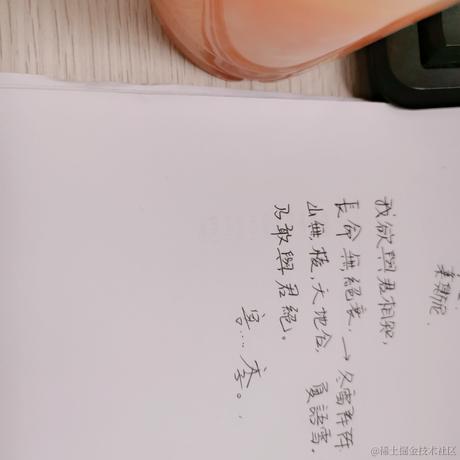 我欲與君相知,
長命無絕衰 → 冬雷阵阵
山無棱,天地合, 夏語雪.
乃敢與君絕。
@稀土掘金技术社区